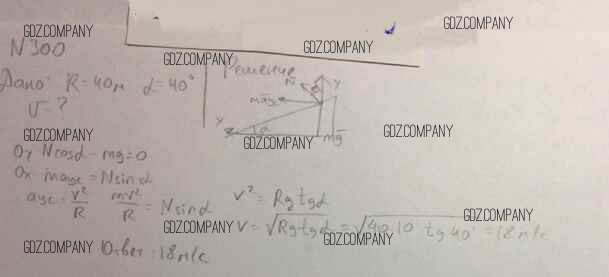 GDZ.COMPANY GDZ.COMPANY
N300 GDZ.COMPANY GDZ.COMPANY
Дано: R=40м α=40° Решение
V-?
N y
maцс
y α mg
GDZ.COMPANY GDZ.COMPANY GDZ.COMPANY
Oy Ncosα-mg=0
Ox maцс=Nsinα
aцс=V²/R mV²/R=Nsinα V²=Rgtgα
GDZ.COMPANY GDZ.COMPANY GDZ.COMPANY
V=√Rgtgα=√40·10 tg40°=18м/с
GDZ.COMPANY Ответ:18м/с